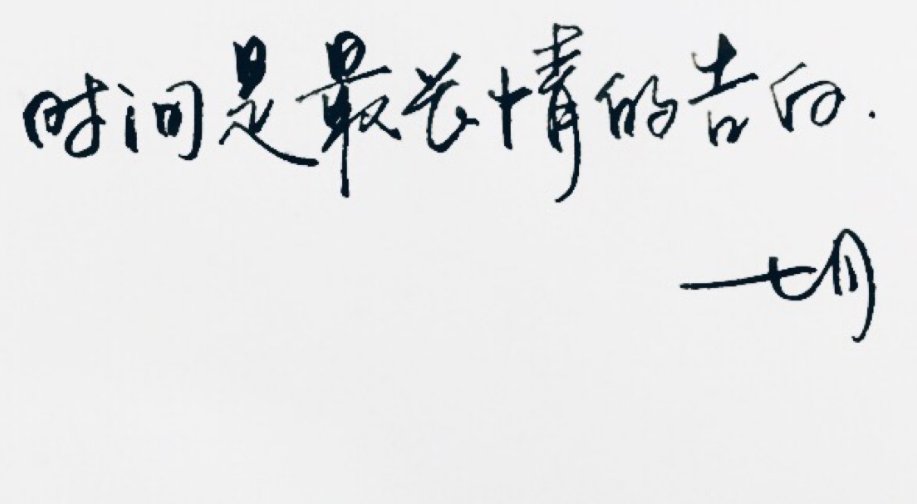 时间是最长情的告白.
—七月